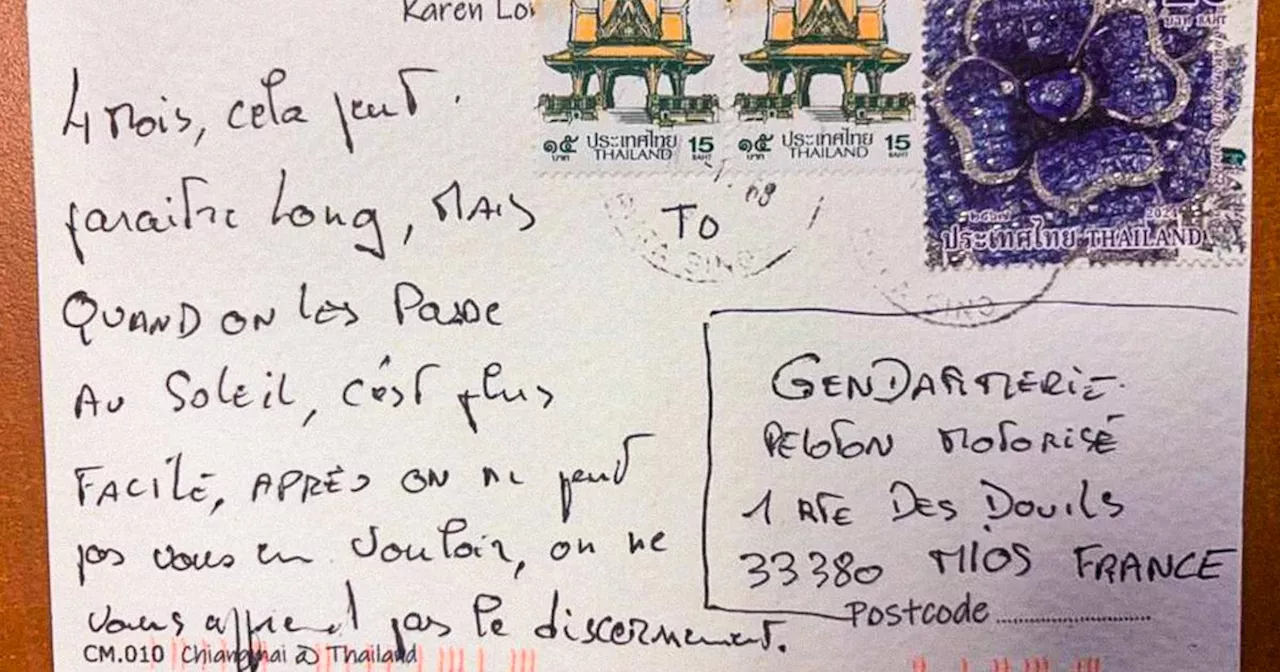 Karen
4 mois, cela peut
paraitre long, mais
QUAND ON LES Passe
AU SOLEIL, c'est plus
FACILE, APRÈS ON NE peut
pas vous en vouloir, on ne
vous apprend pas le discernement.
CM.010 Chiangmai Thailand
๑๕ ประเทศไทย 15
บาท THAILAND BAHT
๑๕ ประเทศไทย 15
บาท THAILAND BAHT
บาท BAHT
๒๕๖๗ 2024
ประเทศไทย THAILAND
TO
GENDARMERIE
PELOTON MOTORISÉ
1 RTE DES DOUILS
33380 MIOS FRANCE
Postcode